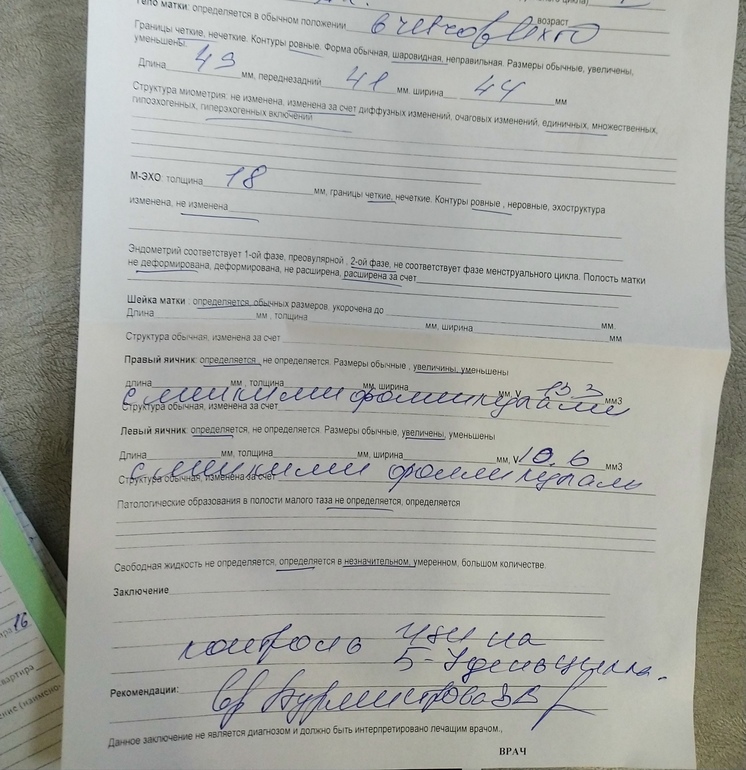 Тело матки: определяется в обычном положении
возраст
Границы четкие, нечеткие. Контуры ровные. Форма обычная, шаровидная, неправильная. Размеры обычные, увеличены,
уменьшены.
Длина 49 мм, переднезадний 41 мм. ширина 44 мм
Структура миометрия: не изменена, изменена за счет диффузных изменений, очаговых изменений, единичных, множественных,
гипоэхогенных, гиперэхогенных включений
М-ЭХО: толщина 18 мм, границы четкие, нечеткие. Контуры ровные , неровные, эхоструктура
изменена, не изменена
Эндометрий соответствует 1-ой фазе, преовулярной , 2-ой фазе, не соответствует фазе менструального цикла. Полость матки
не деформирована, деформирована, не расширена, расширена за счет
Шейка матки : определяется, обычных размеров, укорочена до мм.
Длина мм , толщина мм, ширина мм
Структура обычная, изменена за счет
Правый яичник: определяется , не определяется. Размеры обычные , увеличины, уменьшены
длина мм , толщина мм, ширина мм, V 13.3 мм3
Структура обычная, изменена за счет
с мелкими фолликулами
Левый яичник: определяется, не определяется. Размеры обычные, увеличены, уменьшены
Длина мм, толщина мм, ширина мм, V 10.6 мм3
Структура обычная, изменена за счет
с мелкими фолликулами
Патологические образования в полости малого таза не определяется, определяется
Свободная жидкость не определяется, определяется в незначительном, умеренном, большом количестве.
Заключение
контроль УЗИ на
5-7 день цикла.
Рекомендации: Вр
Данное заключение не является диагнозом и должно быть интерпретировано лечащим врачом.,
ВРАЧ
16
вартира